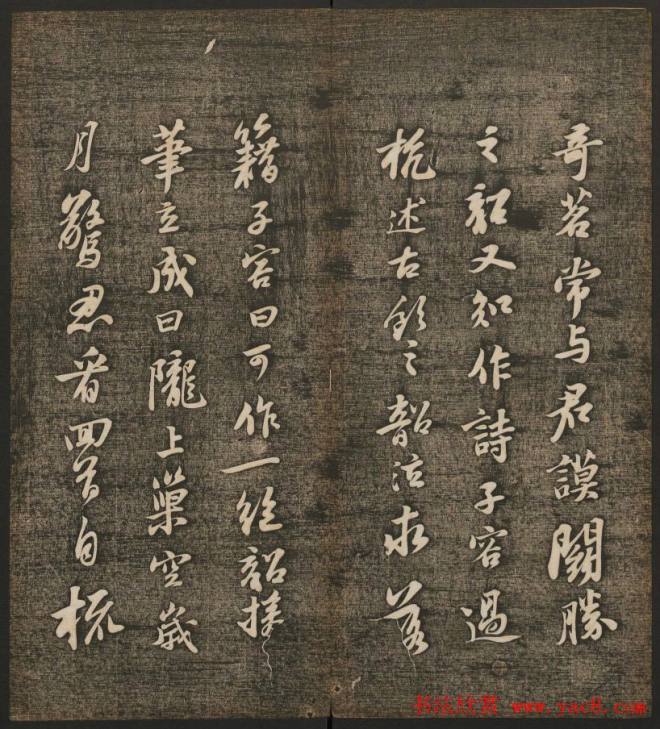 奇茗常与君謨鬭勝
之韶又知作詩子容過
杭述古飲之韶泣求落
籍子容曰可作一絶韶援
筆立成曰隴上巢空歲
月驚忍看回首自梳
书法欣赏 www.yac8.com